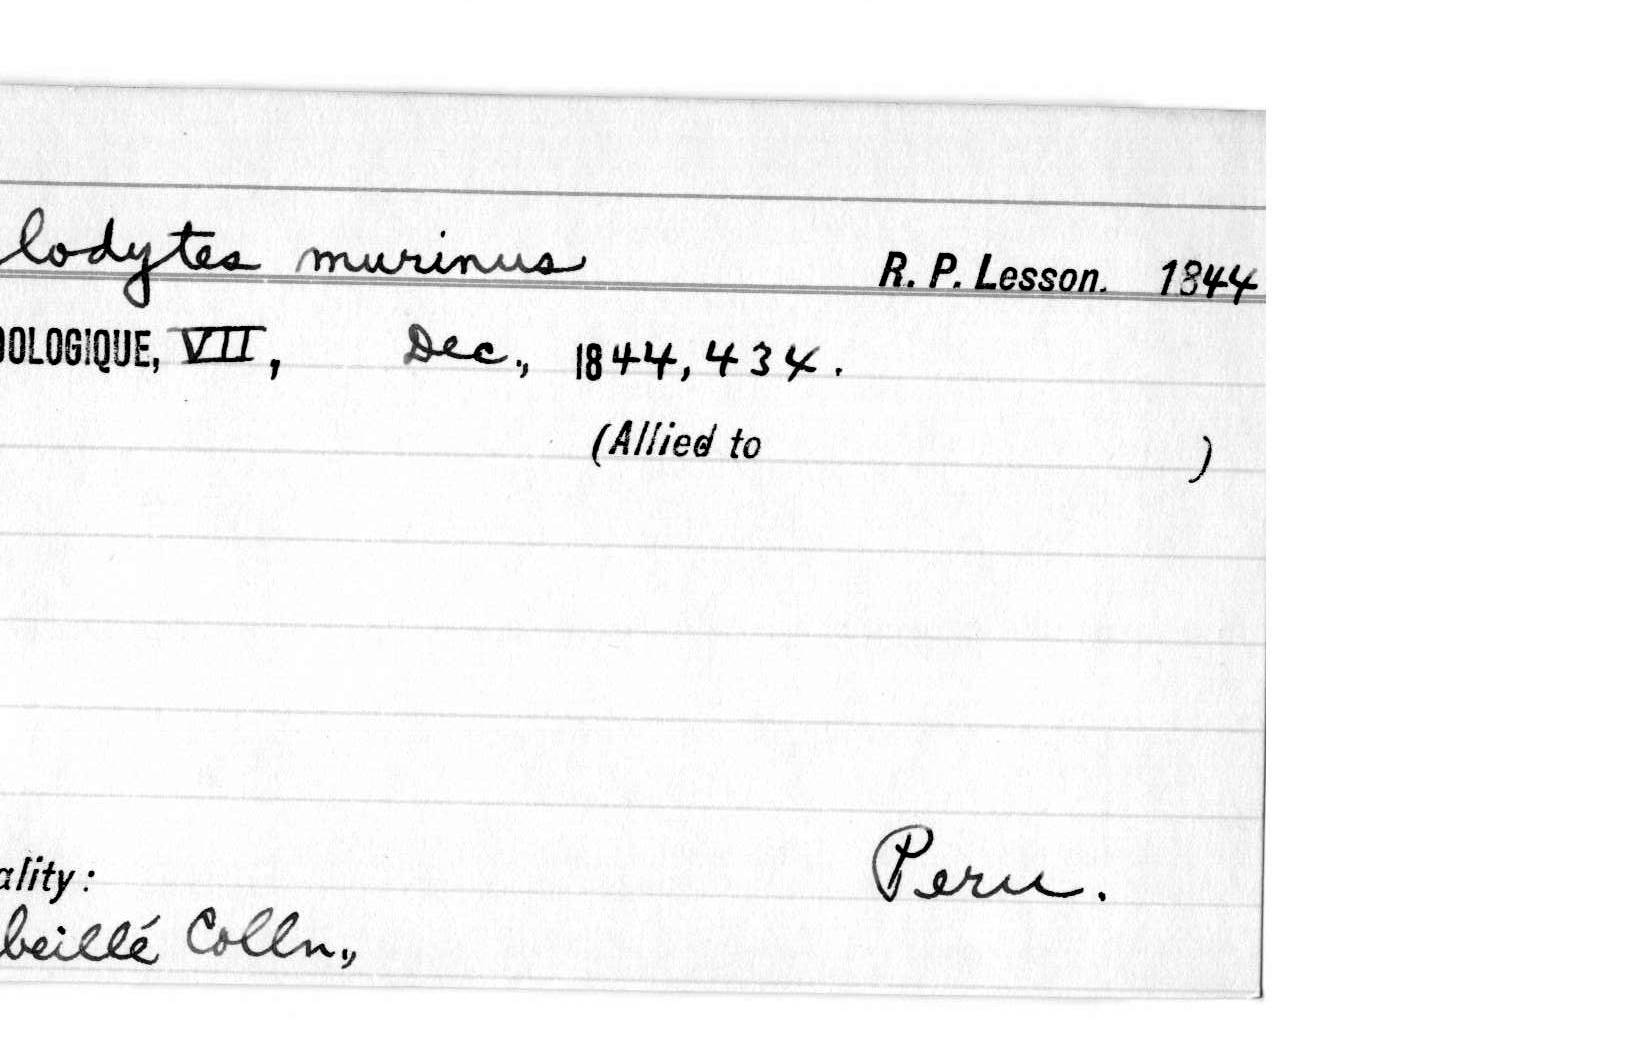 lodytes murinus R. P. Lesson. 1844
OOLOGIQUE, VII, Dec., 1844, 434.
(Allied to )
ality: Peru.
beillé Colln.,